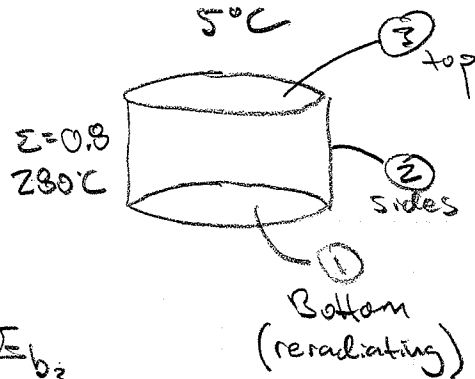 5°C
③
top
ε=0.8
280°C
②
sides
①
Bottom
(reradiating)
E_b₂